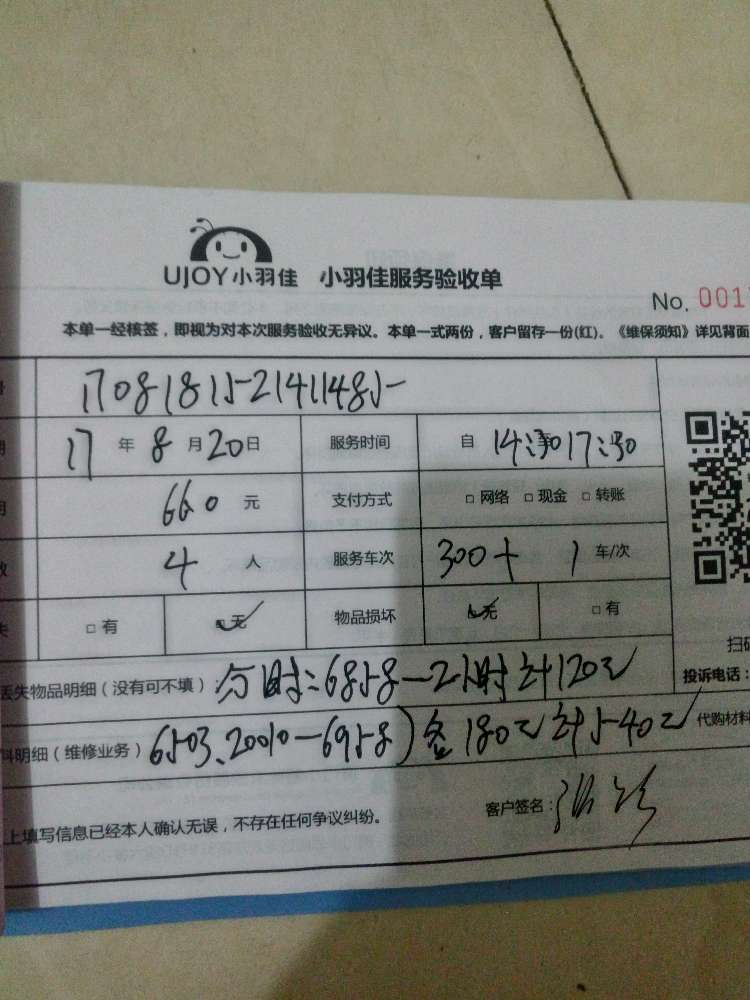 UJOY小羽佳 小羽佳服务验收单
No. 001
本单一经核签，即视为对本次服务验收无异议。本单一式两份，客户留存一份(红)。《维保须知》详见背面
17年8月20日 服务时间 自 14:30 17:30
660元 支付方式 □网络 □现金 □转账
4人 服务车次 300+1车/次
□有 □无 物品损坏 □无 □有
扫码
丢失物品明细（没有可不填）： 6858-2小时计120元 投诉电话：
料明细（维修业务） 6503、20010-6958) 各180元计540元 代购材料
客户签名：
上填写信息已经本人确认无误，不存在任何争议纠纷。